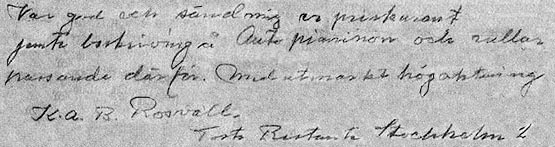 Var god och sänd mig er priskurant
jemte beskrivning å Auto pianinon och rullar
passande därför. Med utmärkt högaktning
K.A.B. Rosvall.
Post Restante Stockholm 2